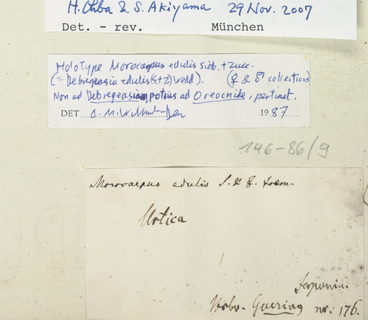 H. Ohba & S. Akiyama 29 Nov. 2007
Det. - rev. München
Holotype Morocarpus edulis Sieb. + Zucc.
(= Debregeasia edulis (S.+Z.) Wedd.). (♀ & ♂ collections)
Non ad Debregeasia potius ad Oreocnide, pertinet.
DET C. M. Wilmot-Dear 1987
146-86/9
Morocarpus edulis S. & Z.
Urtica
Japonia.
Goering no. 176.